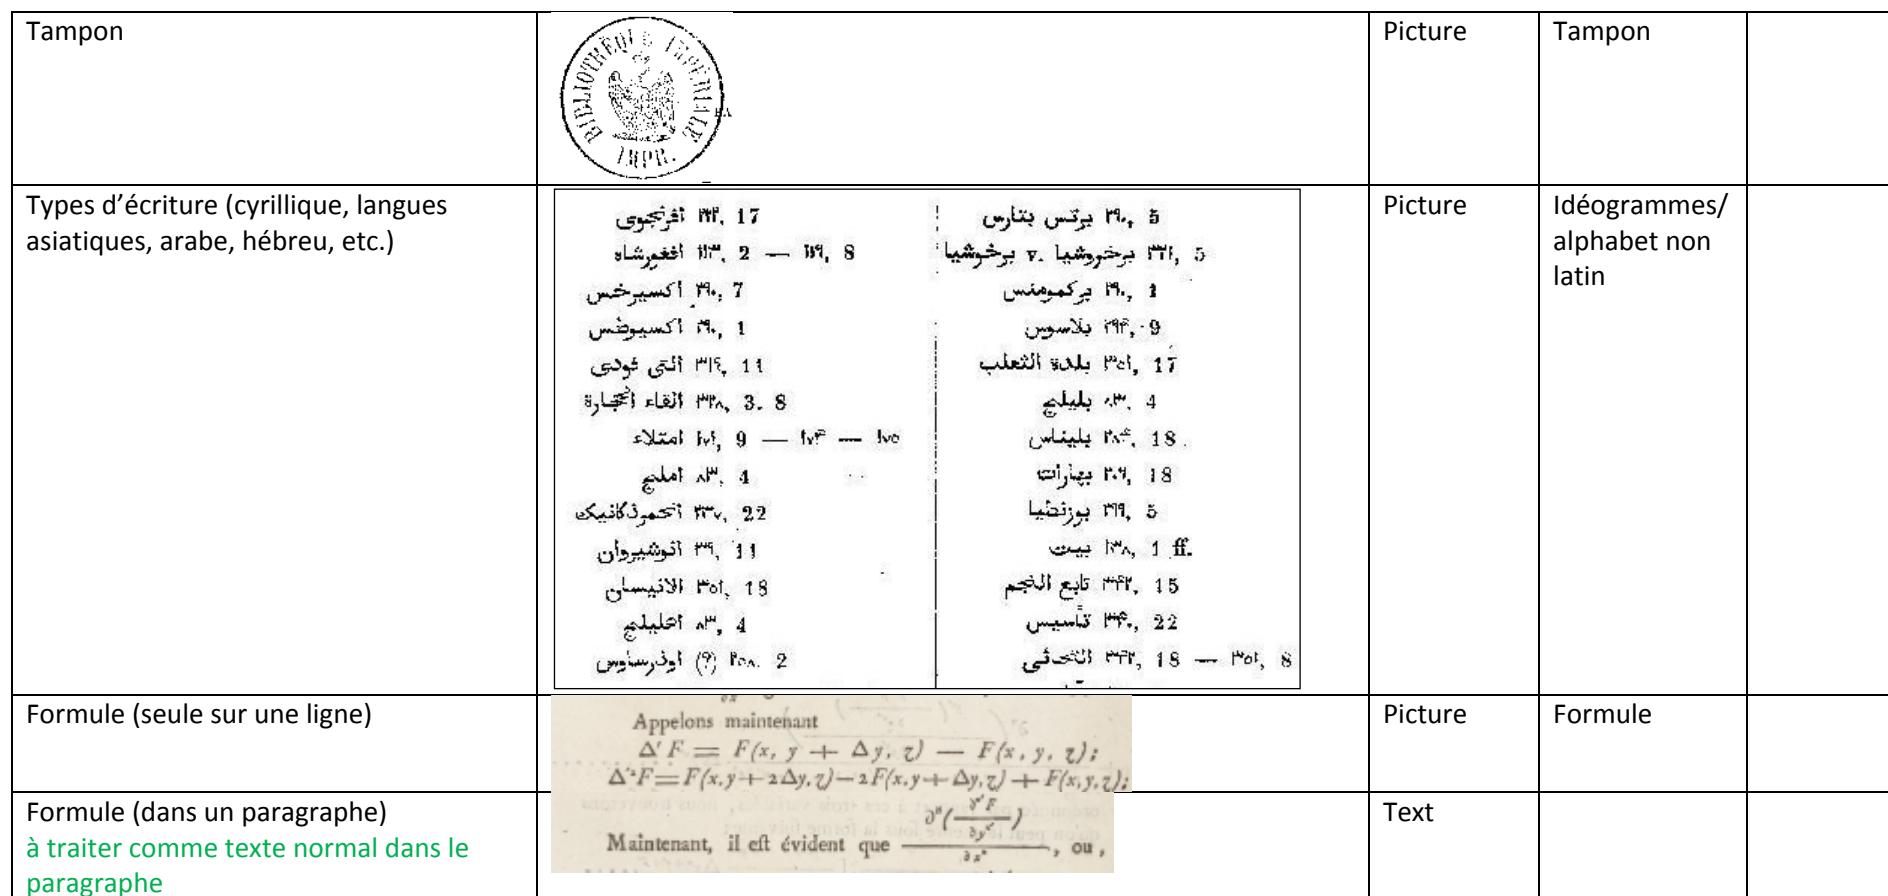 Tampon
BIBLIOTHÈQUE IMPÉRIALE
IMPR.
Picture
Tampon
Types d’écriture (cyrillique, langues
asiatiques, arabe, hébreu, etc.)
17
افغورشاه 2 — 8
اكسيرخس ٢٩٠, 7
اكسيوطس ٢٩٠, 1
11
3. 8
امتلاء ١٧١, 9 — ١٧٤ — ١٧٥
املج ٨٣, 4
22
انوشيروان ٣٩, 11
الانيسان ٣٥١, 18
اهليلج ٨٣, 4
(?) ٢٥٨. 2
5
برخروشيا v. برخوشيا ٣٣١, 5
٢٩٠, 1
بلاسوس ٢٩٤, 9
بلدة الثعلب ٣٥١, 17
بليلج ٨٣, 4
بليناس 18
بهارات ٢٠٩, 18
5
بيت ١٣٨, 1 ff.
تابع النجم ٣٤٢, 15
تأسيس 22
18 — ٣٥١, 8
Picture
Idéogrammes/
alphabet non
latin
Formule (seule sur une ligne)
Appelons maintenant
Δ' F = F(x, y + Δy, z) — F(x, y, z);
Δ'²F=F(x,y+2Δy,z)—2F(x,y+Δy,z)+F(x,y,z);
Picture
Formule
Formule (dans un paragraphe)
à traiter comme texte normal dans le
paragraphe
Maintenant, il eſt évident que ∂ⁿ(∂'F/∂y')/∂xⁿ, ou,
Text